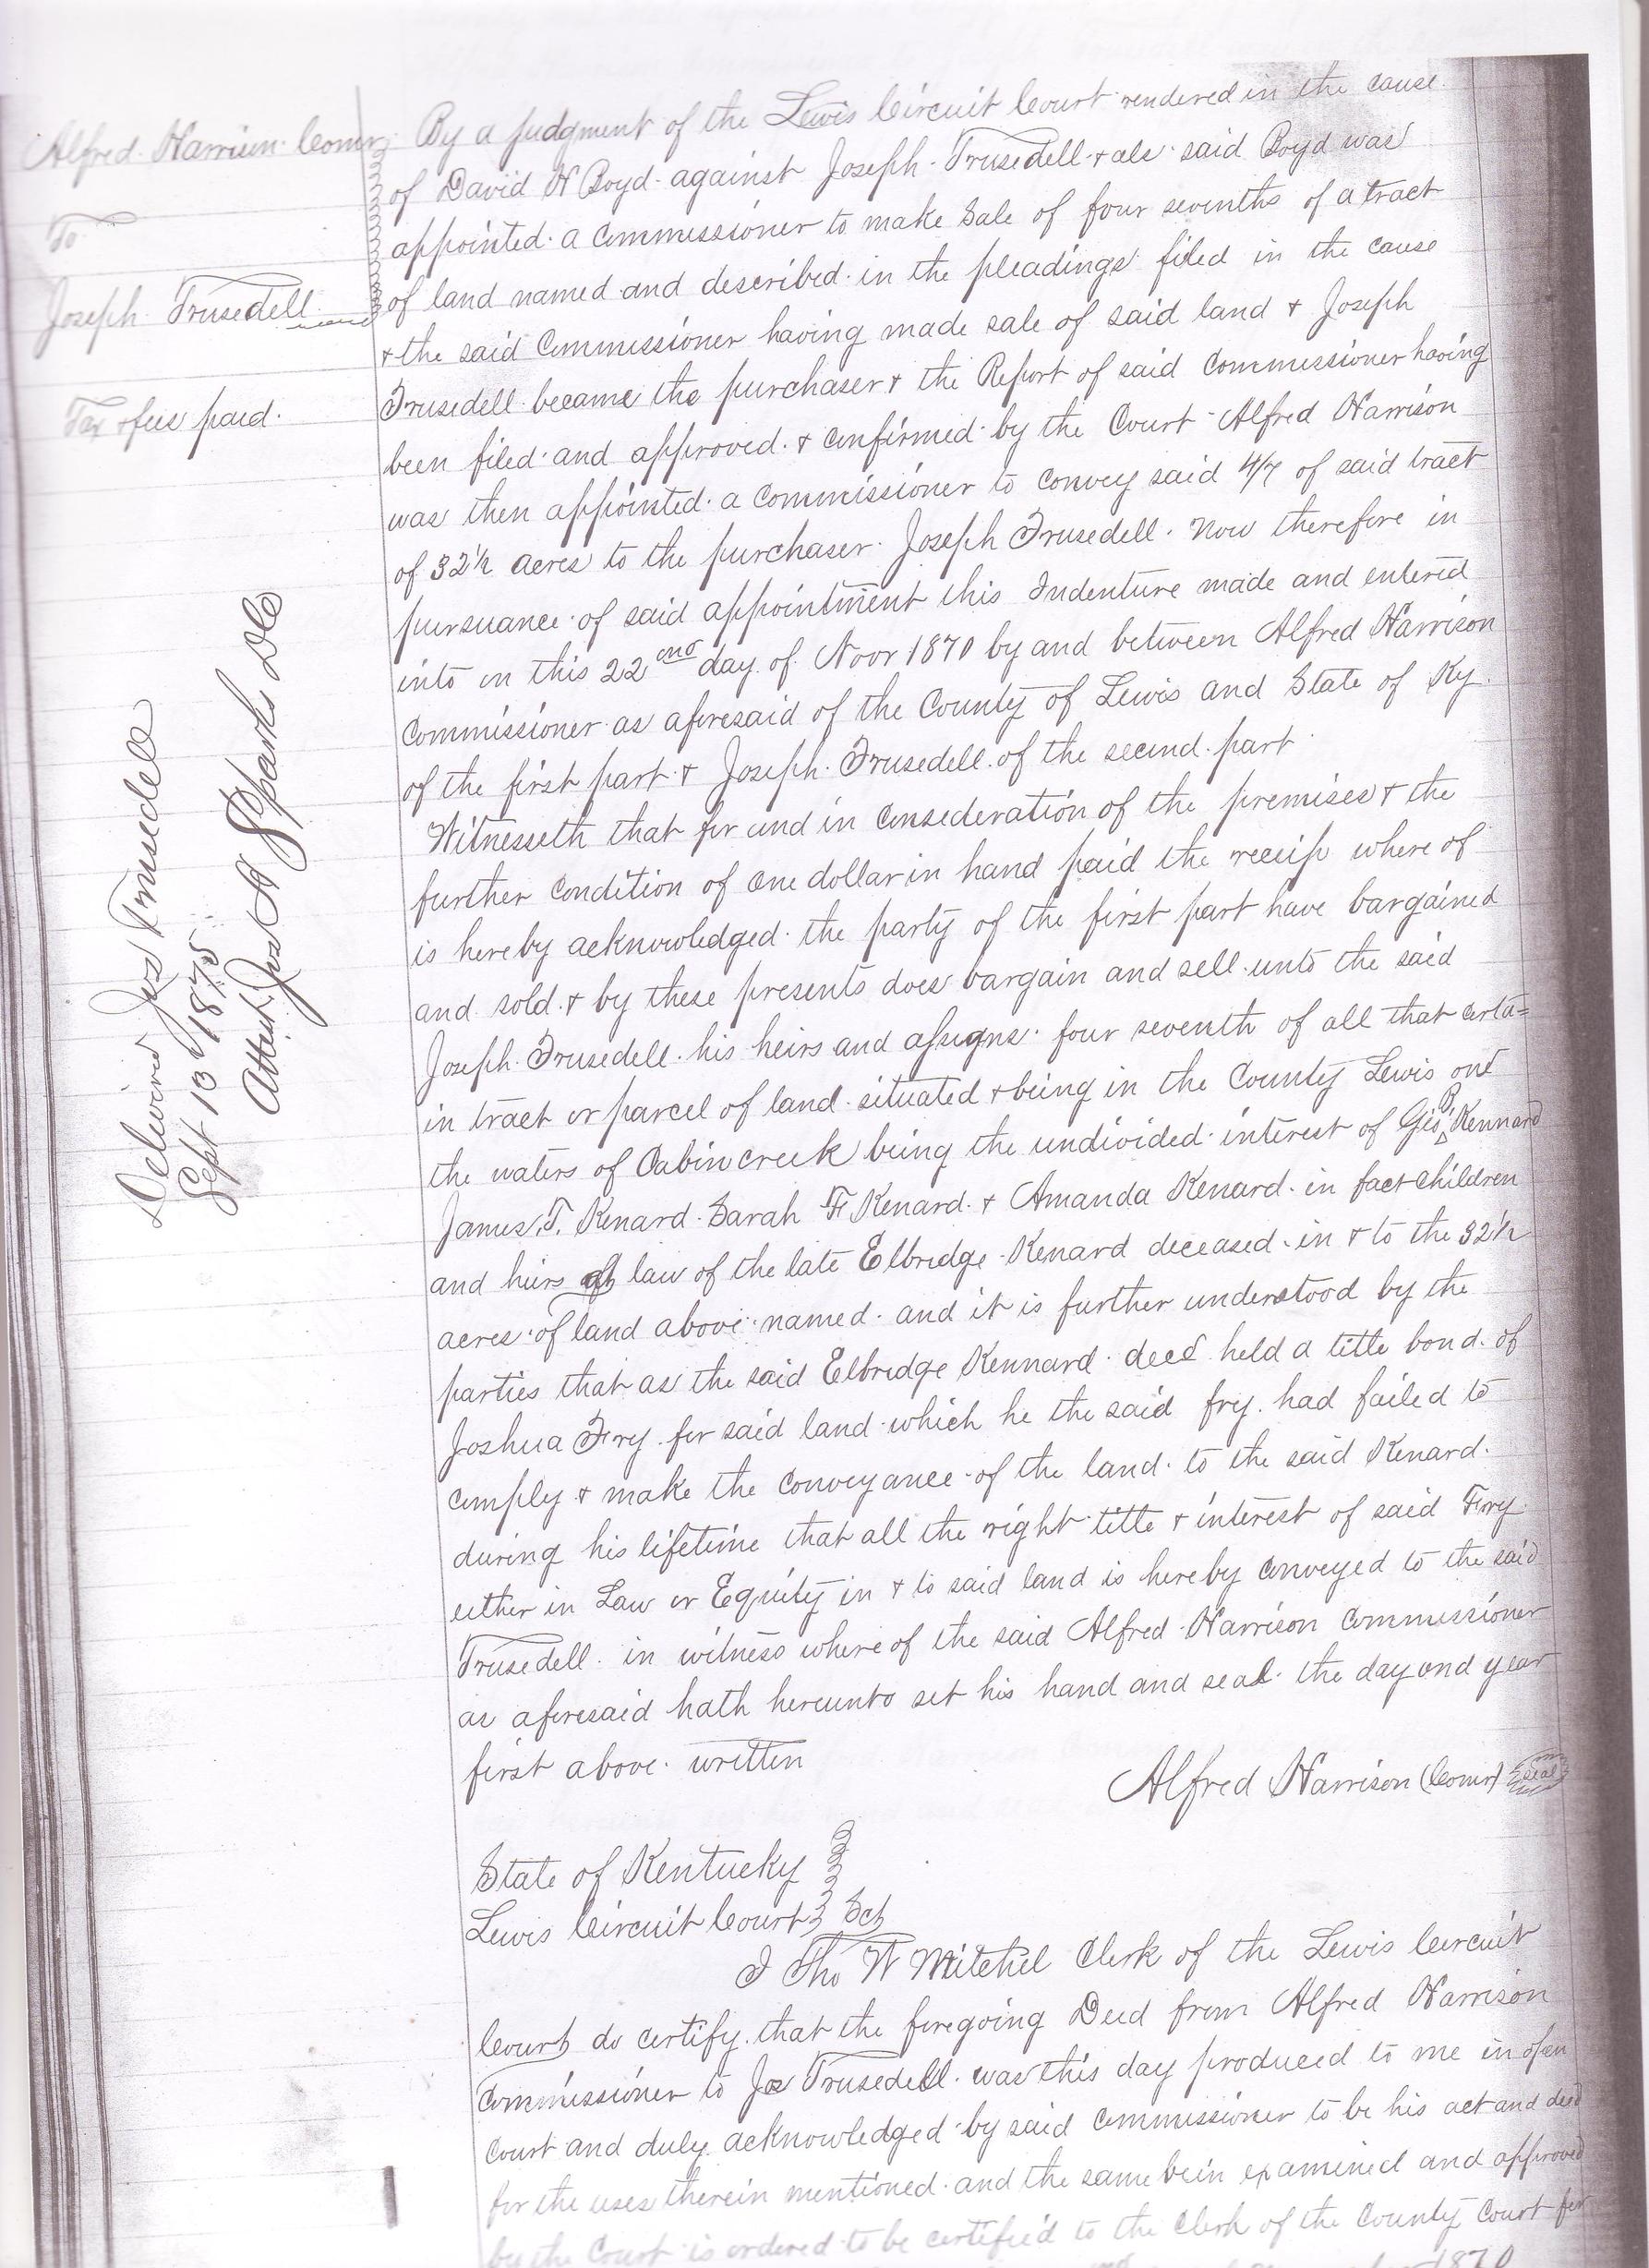 Alfred Harrison Comr
To
Joseph Trusedell
Tax & fees paid.
Delivered Jos Trusedell
Sept 13 1875
Attest Jos A Sparks DC
By a judgment of the Lewis Circuit Court rendered in the cause
of David N Boyd against Joseph Trusedell & als said Boyd was
appointed a Commissioner to make Sale of four sevenths of a tract
of land named and described in the pleadings filed in the cause
& the said Commissioner having made sale of said land & Joseph
Trusedell became the purchaser & the Report of said Commissioner having
been filed and approved & confirmed by the Court Alfred Harrison
was then appointed a Commissioner to convey said 4/7 of said tract
of 32½ acres to the purchaser Joseph Trusedell. Now therefore in
pursuance of said appointment this Indenture made and entered
into on this 22nd day of Novr 1870 by and between Alfred Harrison
Commissioner as aforesaid of the County of Lewis and State of Ky.
of the first part & Joseph Trusedell of the second part
Witnesseth that for und in Consideration of the premises & the
further Condition of one dollar in hand paid the receip where of
is hereby acknowledged the party of the first part have bargained
and sold & by these presents does bargain and sell unto the said
Joseph Trusedell his heirs and assigns four seventh of all that certa=
in tract or parcel of land situated & being in the County Lewis on
the waters of Cabin creek being the undivided interest of Geo B Kennard
James T. Kenard Sarah F Kenard & Amanda Kenard in fact children
and heirs at law of the late Elbridge Kenard deceased in & to the 32½
acres of land above named and it is further understood by the
parties that as the said Elbridge Kennard decd held a title bond of
Joshua Fry for said land which he the said fry had failed to
comply & make the Conveyance of the land to the said Kenard
during his lifetime that all the right title & interest of said Fry
either in Law or Equity in & to said land is hereby Conveyed to the said
Trusedell in witness where of the said Alfred Harrison Commissioner
as aforesaid hath hereunto set his hand and seal the day and year
first above written
Alfred Harrison (Comr) Seal
State of Kentucky
Lewis Circuit Court Sct
I Tho W Mitchel Clerk of the Lewis Circuit
Court do certify that the foregoing Deed from Alfred Harrison
Commissioner to Jos Trusedell was this day produced to me in open
Court and duly acknowledged by said Commissioner to be his act and deed
for the uses therein mentioned and the same bein examined and approved
by the Court is ordered to be certified to the Clerk of the County Court for
1870